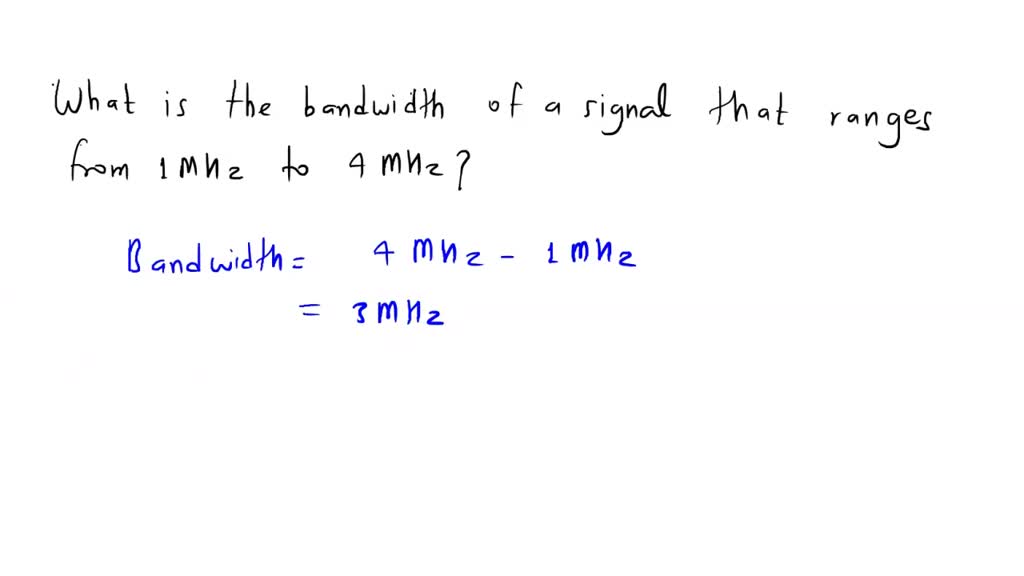 What is the bandwidth of a signal that ranges
from 1 MHz to 4 MHz?
Bandwidth = 4 MHz - 1 MHz
= 3 MHz